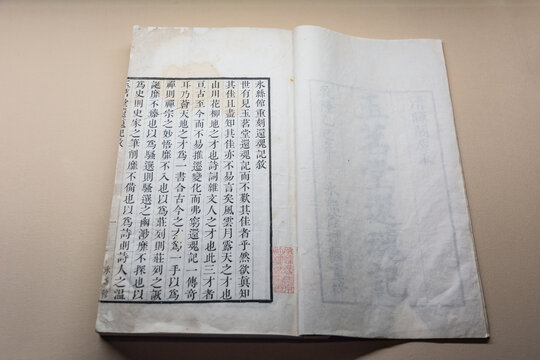 冰絲館重刻還魂記敘
世有見玉茗堂還魂記而不歎其佳者乎然欲眞知
其佳且盡知其佳亦不易言矣風雲月露天之才也
山川花柳地之才也詩詞雜文人之才也此三才者
亘古至今而不易推遷變化而弗窮還魂記一傳奇
耳乃薈天地之才爲一書合古今之才爲一手以爲
禪則禪宗之妙悟靡不入也以爲莊列則莊列之詼
誕靡不臻也以爲騷選則騷選之幽渺靡不探也以
爲史則史家之筆削靡不備也以爲詩則詩人之溫